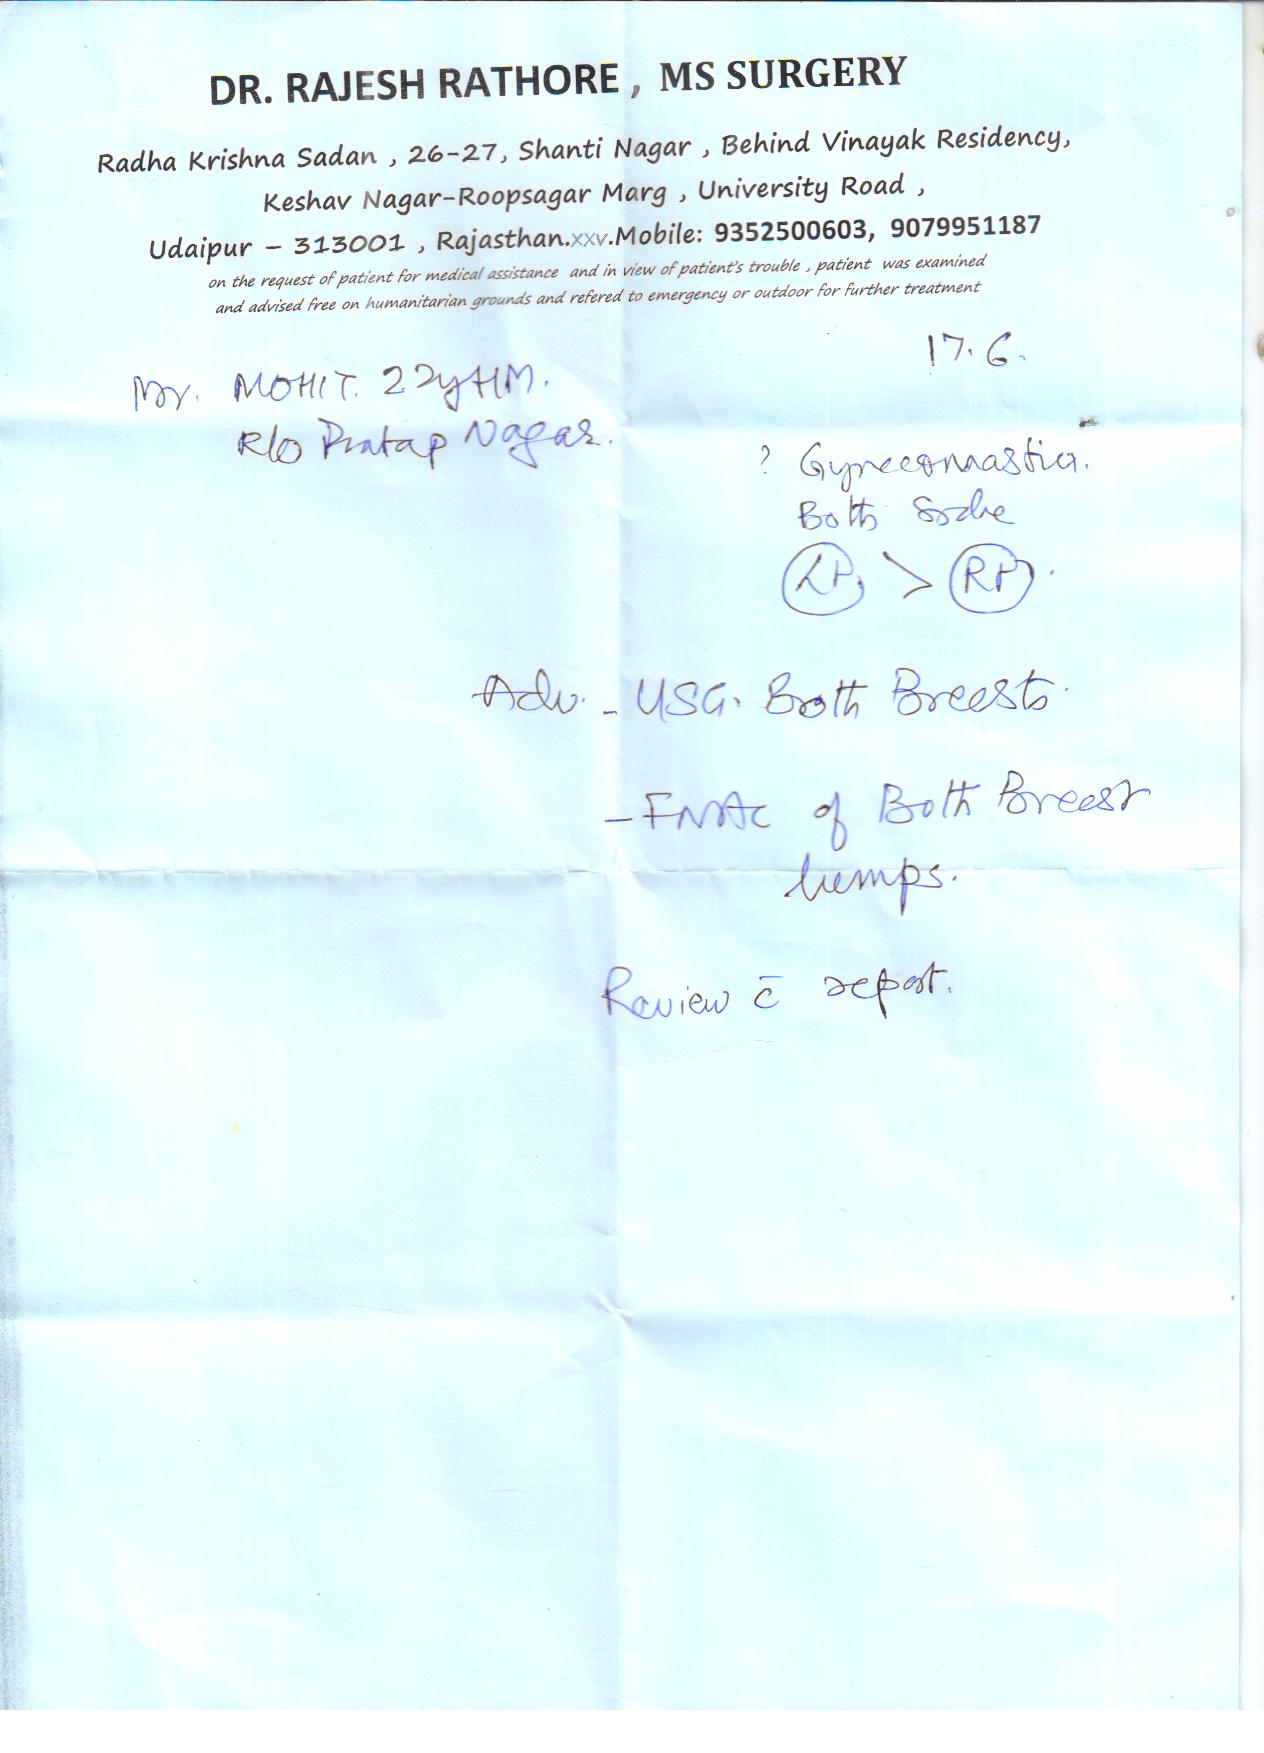 DR. RAJESH RATHORE , MS SURGERY
Radha Krishna Sadan , 26-27, Shanti Nagar , Behind Vinayak Residency,
Keshav Nagar-Roopsagar Marg , University Road ,
Udaipur – 313001 , Rajasthan.xxv.Mobile: 9352500603, 9079951187
on the request of patient for medical assistance and in view of patient's trouble , patient was examined
and advised free on humanitarian grounds and refered to emergency or outdoor for further treatment
17.6.
Mr. MOHIT. 22y HM.
R/o Pratap Nagar.
? Gynecomastia.
Both Side
Lt. > Rt.
Adv. - USG. Both Breasts.
- FNAC of Both Breast
lumps.
Review c̄ report.